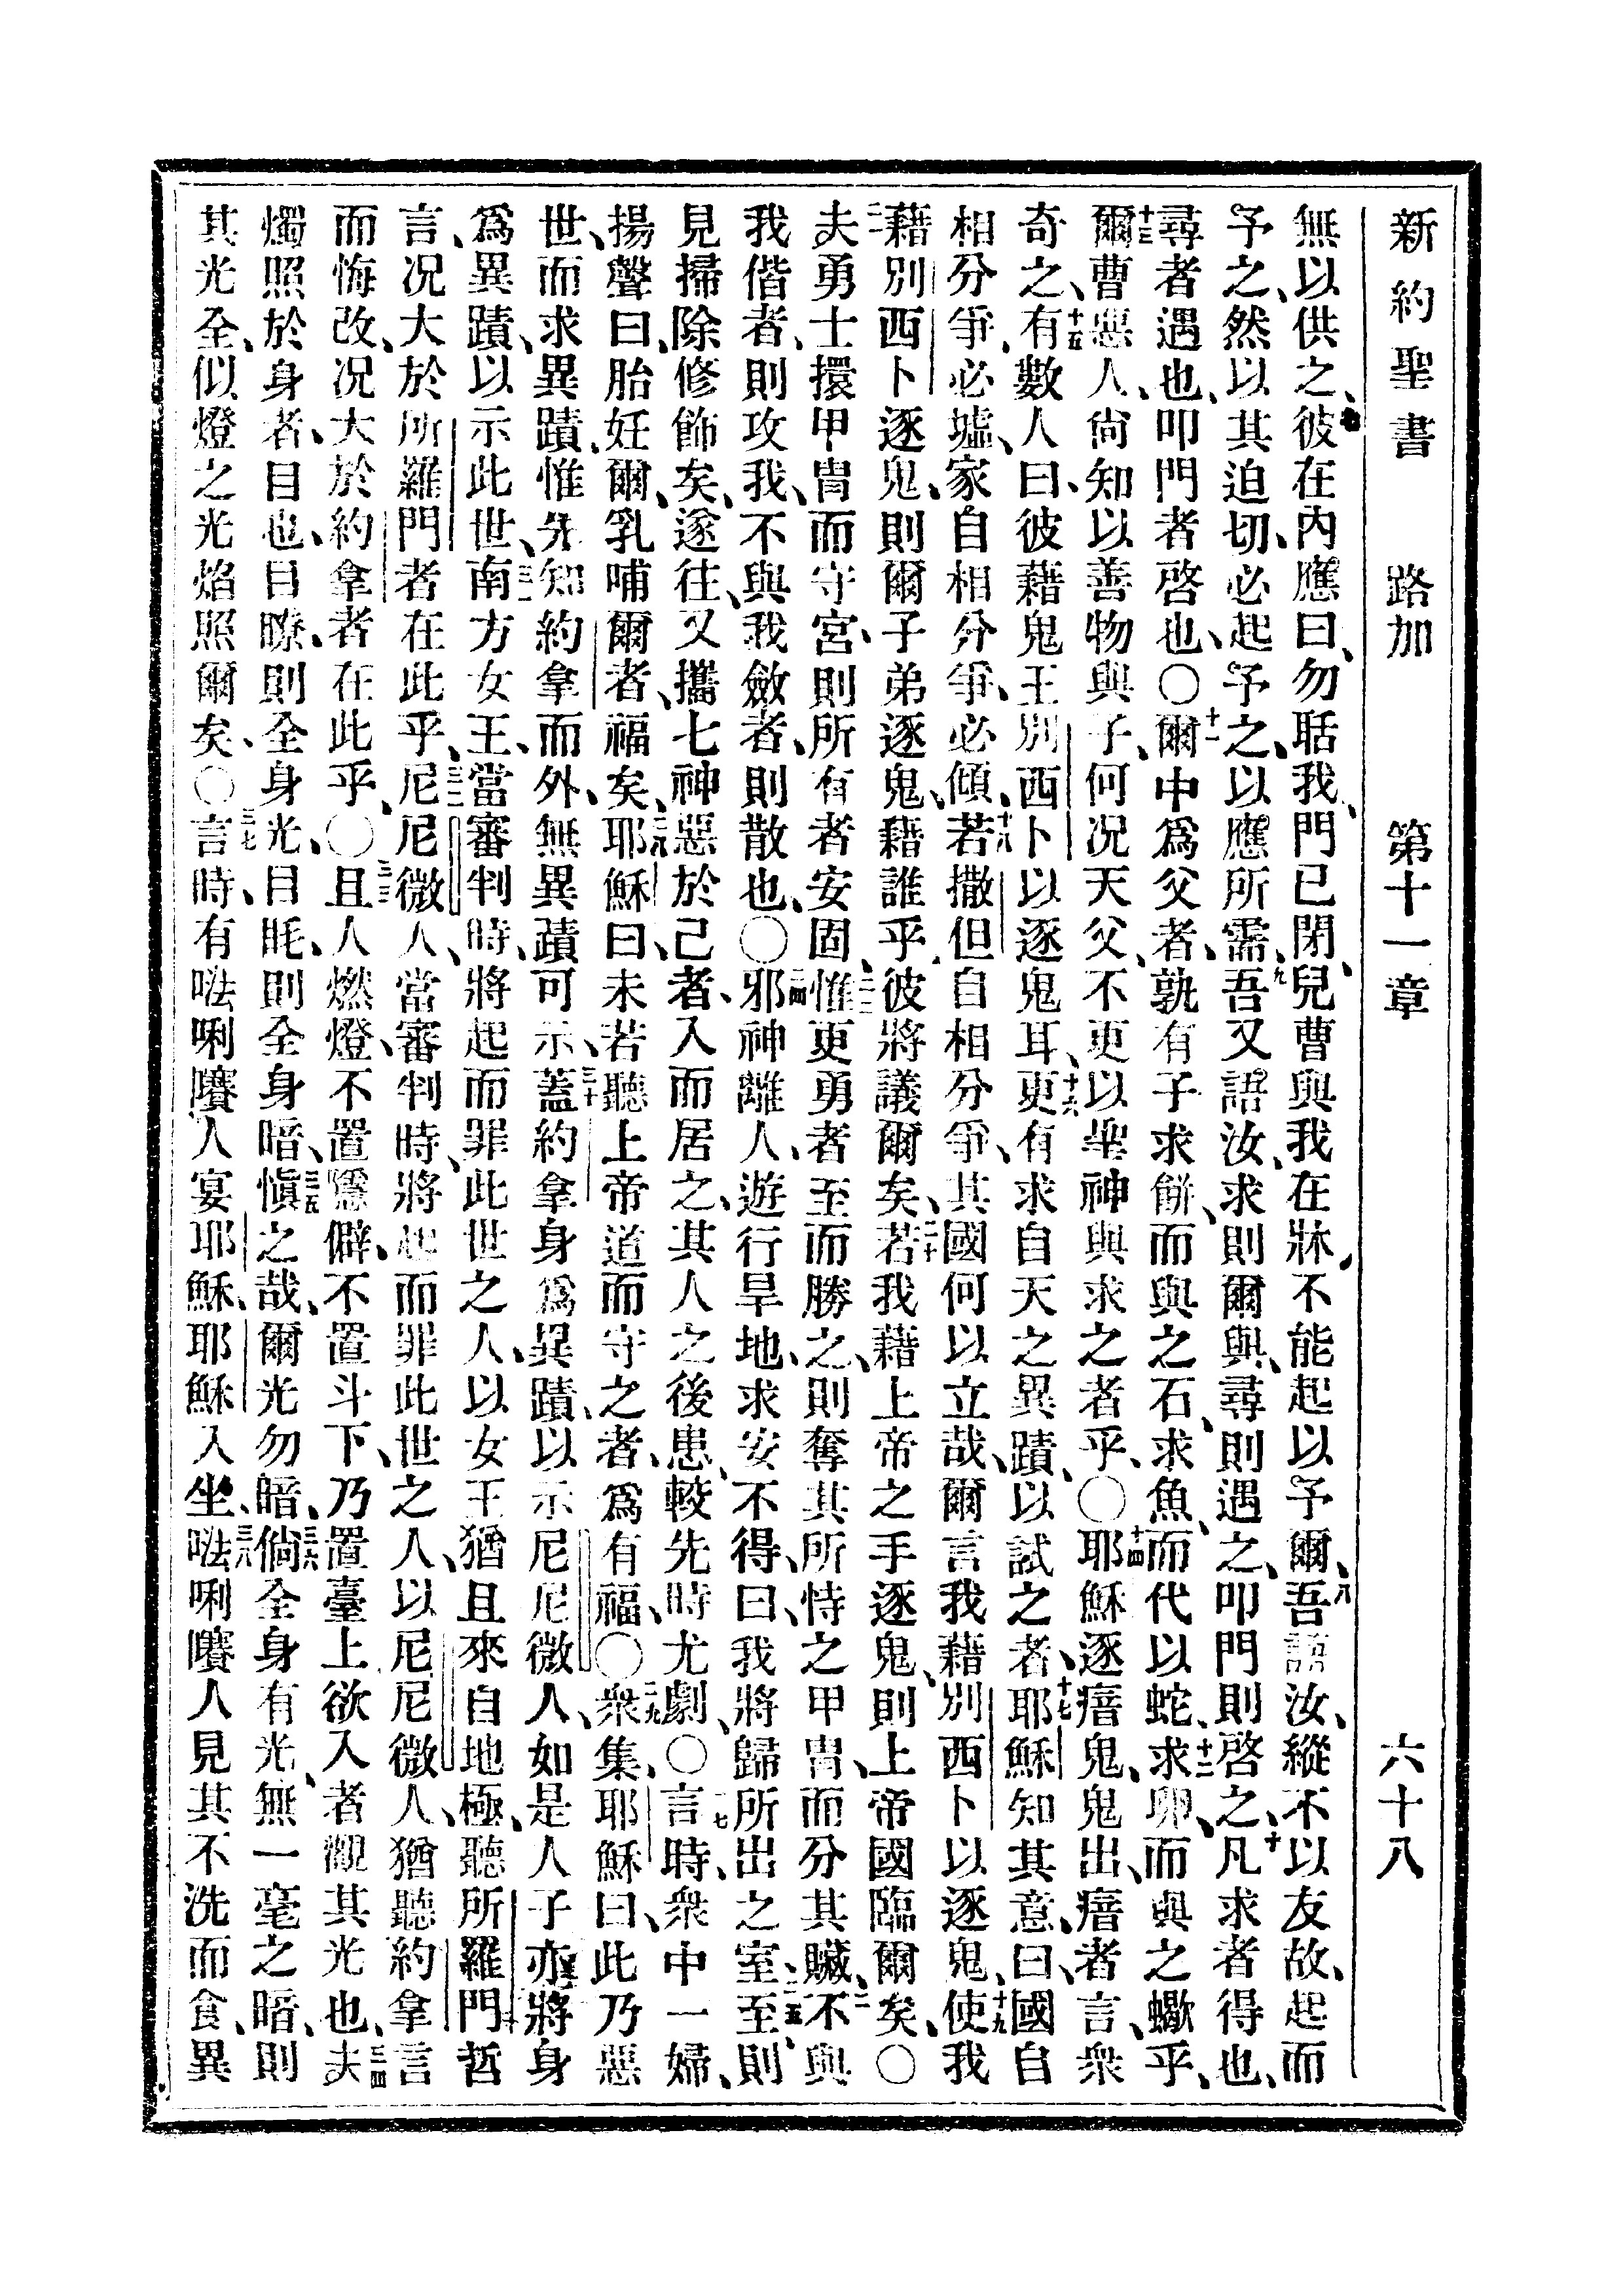 新約聖書 路加 第十一章 六十八
無以供之、七彼在內應曰、勿聒我、門已閉、兒曹與我在牀、不能起以予爾、八吾語汝、縱不以友故、起而
予之、然以其迫切、必起予之、以應所需、九吾又語汝、求則爾與、尋則遇之、叩門則啓之、十凡求者得也、
尋者遇也、叩門者啓也、〇十一爾中爲父者、孰有子求餅、而與之石、求魚、而代以蛇、十二求卵、而與之蠍乎、
十三爾曹惡人、尙知以善物與子、何况天父、不更以聖神與求之者乎、〇十四耶穌逐瘖鬼、鬼出、瘖者言、衆
奇之、十五有數人曰、彼藉鬼王別西卜以逐鬼耳、十六更有求自天之異蹟、以試之者、十七耶穌知其意、曰、國自
相分爭、必墟、家自相分爭、必傾、十八若撒但自相分爭、其國何以立哉、爾言我藉別西卜以逐鬼、十九使我
藉別西卜逐鬼、則爾子弟逐鬼、藉誰乎、彼將議爾矣、二十若我藉上帝之手逐鬼、則上帝國臨爾矣、〇
二一夫勇士擐甲冑而守宮、則所有者安固、二二惟更勇者至而勝之、則奪其所恃之甲冑、而分其贓、二三不與
我偕者、則攻我、不與我斂者、則散也、〇二四邪神離人、遊行旱地、求安不得、曰、我將歸所出之室、二五至、則
見掃除修飾矣、遂往、又攜七神惡於己者、入而居之、其人之後患、較先時尤劇、〇二七言時、衆中一婦、
揚聲曰、胎妊爾、乳哺爾者、福矣、二八耶穌曰、未若聽上帝道而守之者、爲有福、〇二九衆集、耶穌曰、此乃惡
世、而求異蹟、惟先知約拿而外、無異蹟可示、三十蓋約拿身爲異蹟、以示尼尼微人、如是人子亦將身
爲異蹟、以示此世、三一南方女王、當審判時、將起而罪此世之人、以女王猶且來自地極、聽所羅門哲
言、况大於所羅門者在此乎、三二尼尼微人、當審判時、將起而罪此世之人、以尼尼微人、猶聽約拿言
而悔改、况大於約拿者在此乎、〇三三且人燃燈、不置隱僻、不置斗下、乃置臺上、欲入者觀其光也、三四夫
燭照於身者、目也、目瞭、則全身光、目眊、則全身暗、三五愼之哉、爾光勿暗、三六倘全身有光、無一毫之暗、則
其光全、似燈之光焰照爾矣、〇三七言時、有𠵽唎㘔人宴耶穌、耶穌入坐、三八𠵽唎㘔人見其不洗而食、異